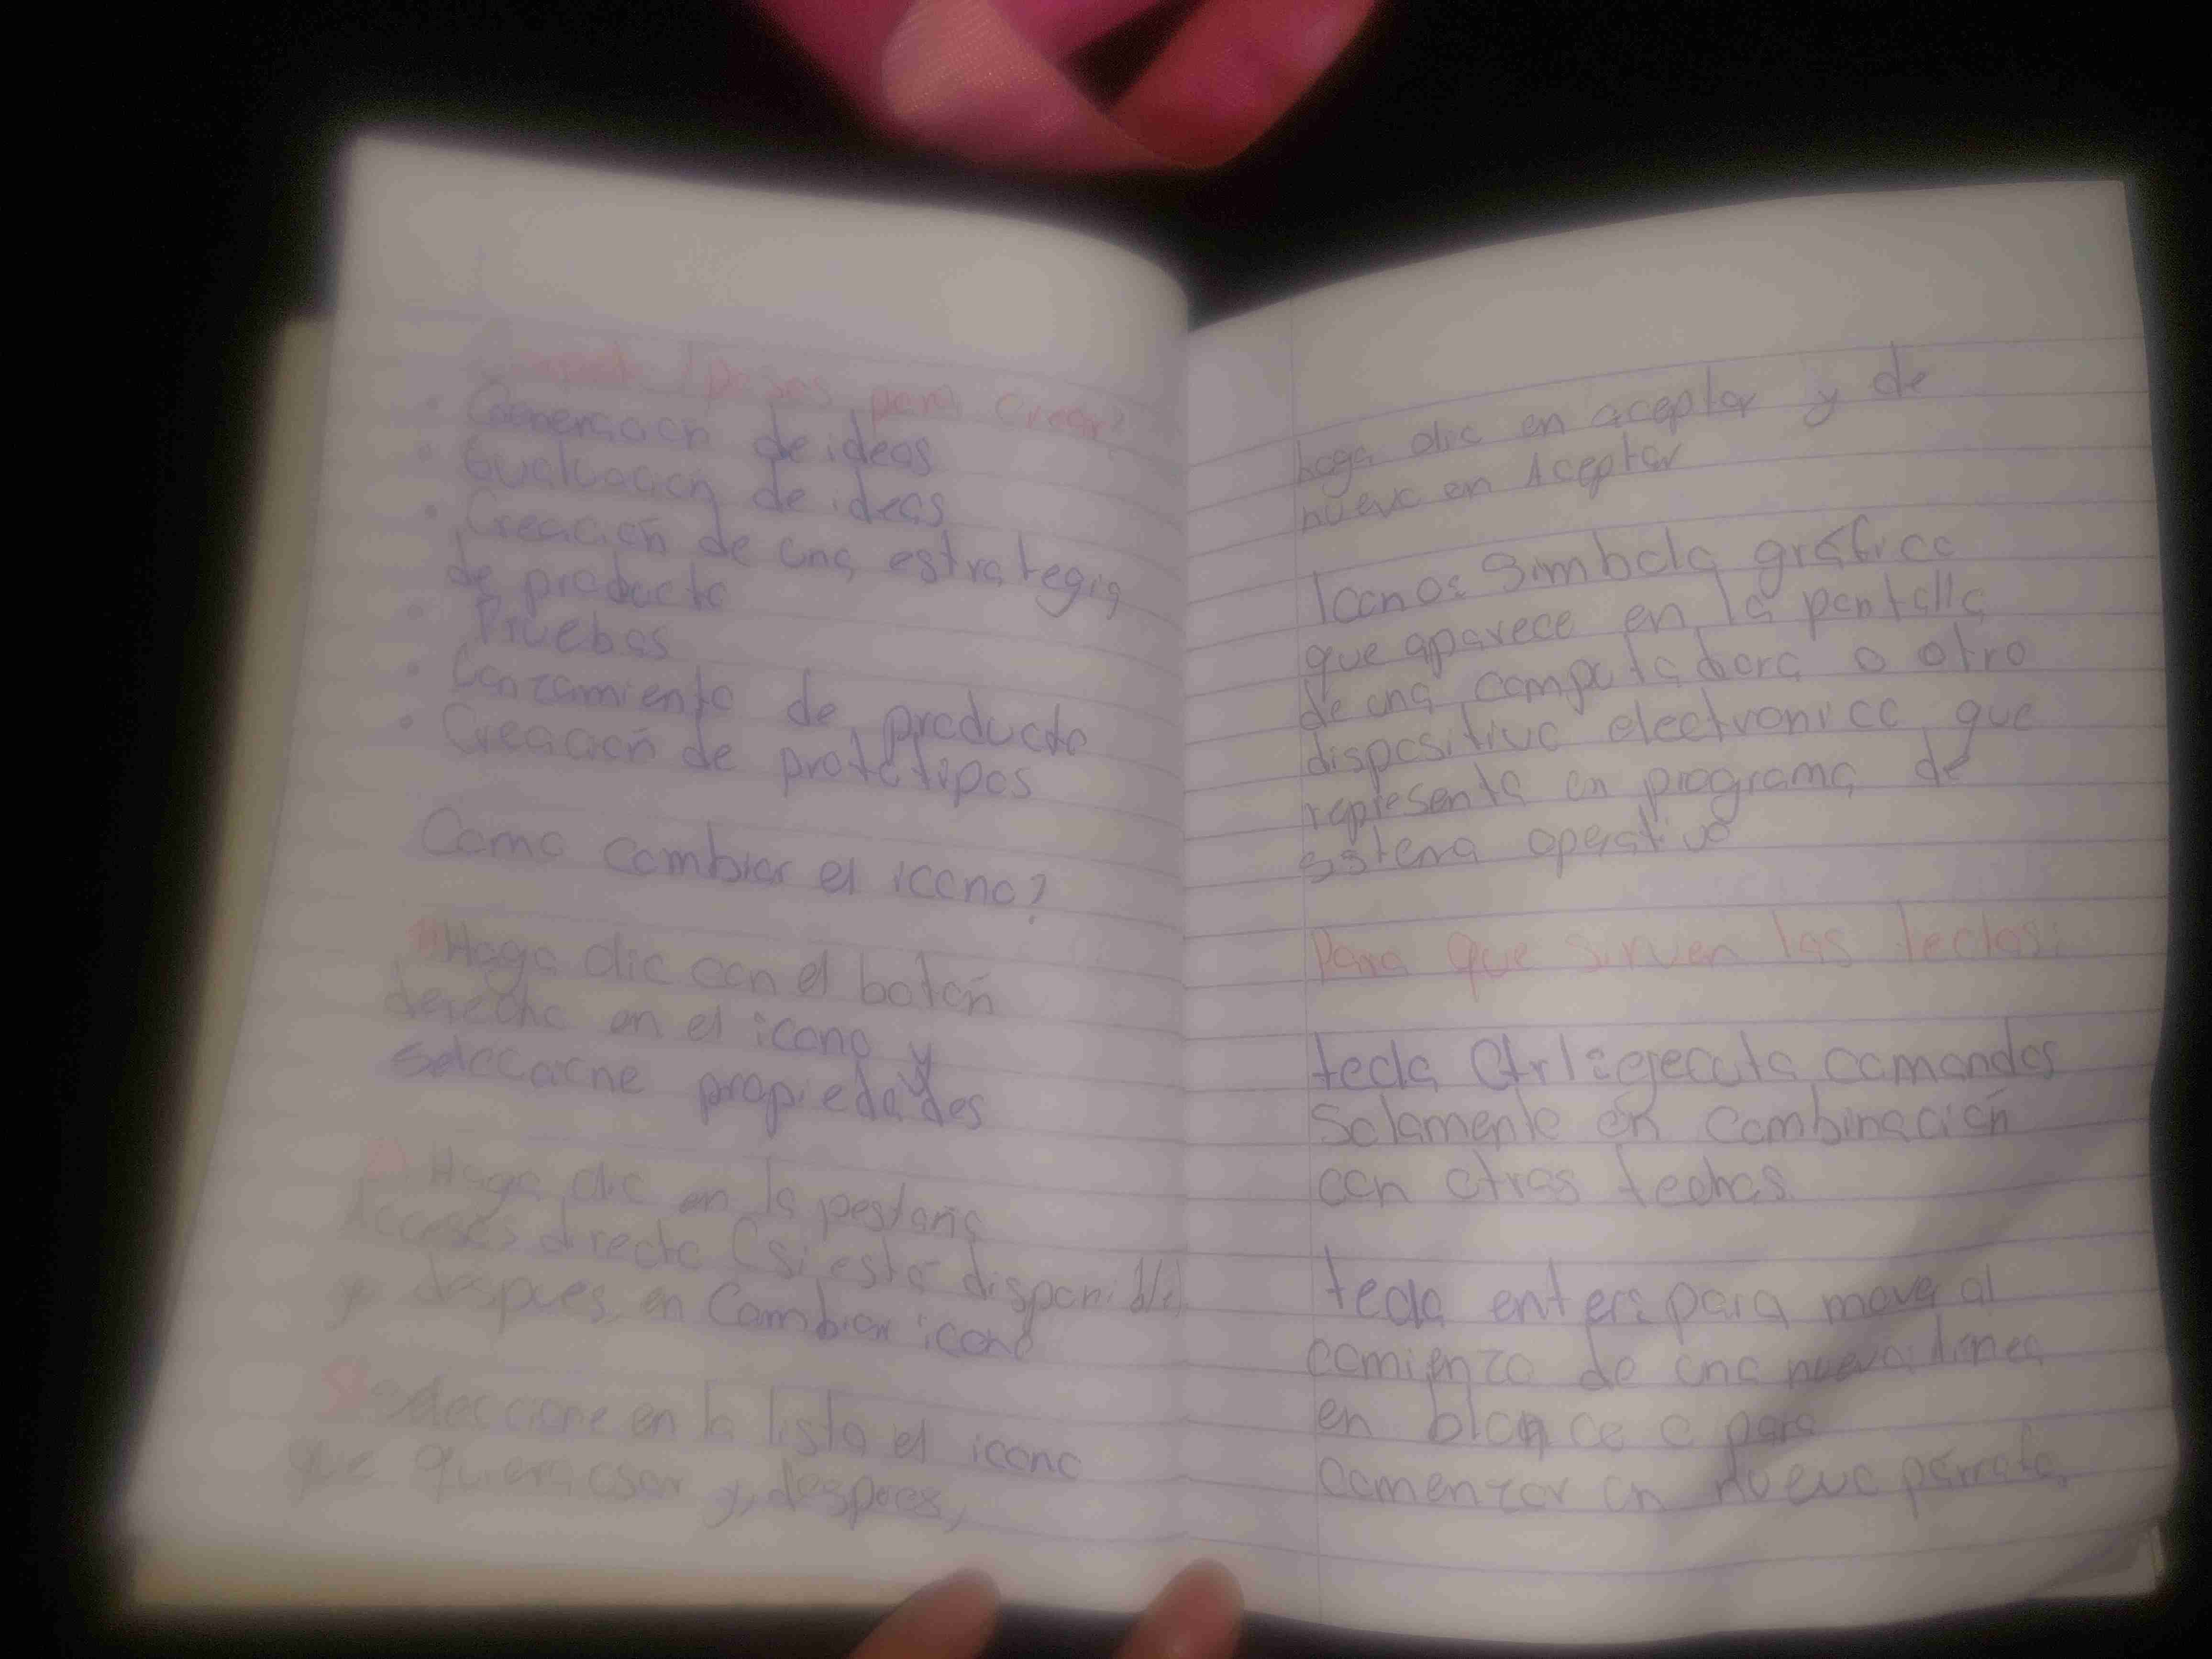 pasos para crear?
• Generación de ideas
• Evaluacion de ideas
• Creación de una estrategia
de producto
• Pruebas
• Lanzamiento de producto
• Creación de prototipos
Como cambiar el icono?
Haga clic con el botón
derecho en el icono y
selccione propiedades
Haga clic en la pestaña
Acceses directo (si está disponible)
y despues, en Cambiar icono
seleccione en la lista el icono
que quiera usar y, despues,
haga clic en aceptar y de
nuevo en Aceptar
Icono: Simbolo gráfico
que aparece en la pantalla
de una computadora o otro
dispositivo electronico que
representa un programa de
sistema operativo
Para que sirven las teclas:
tecla Ctrl: ejecuta comandos
Solamente en combinación
con otras teclas
tecla enter: para mover al
comienzo de una nueva linea
en blanco o para
comenzar un nuevo párrafo